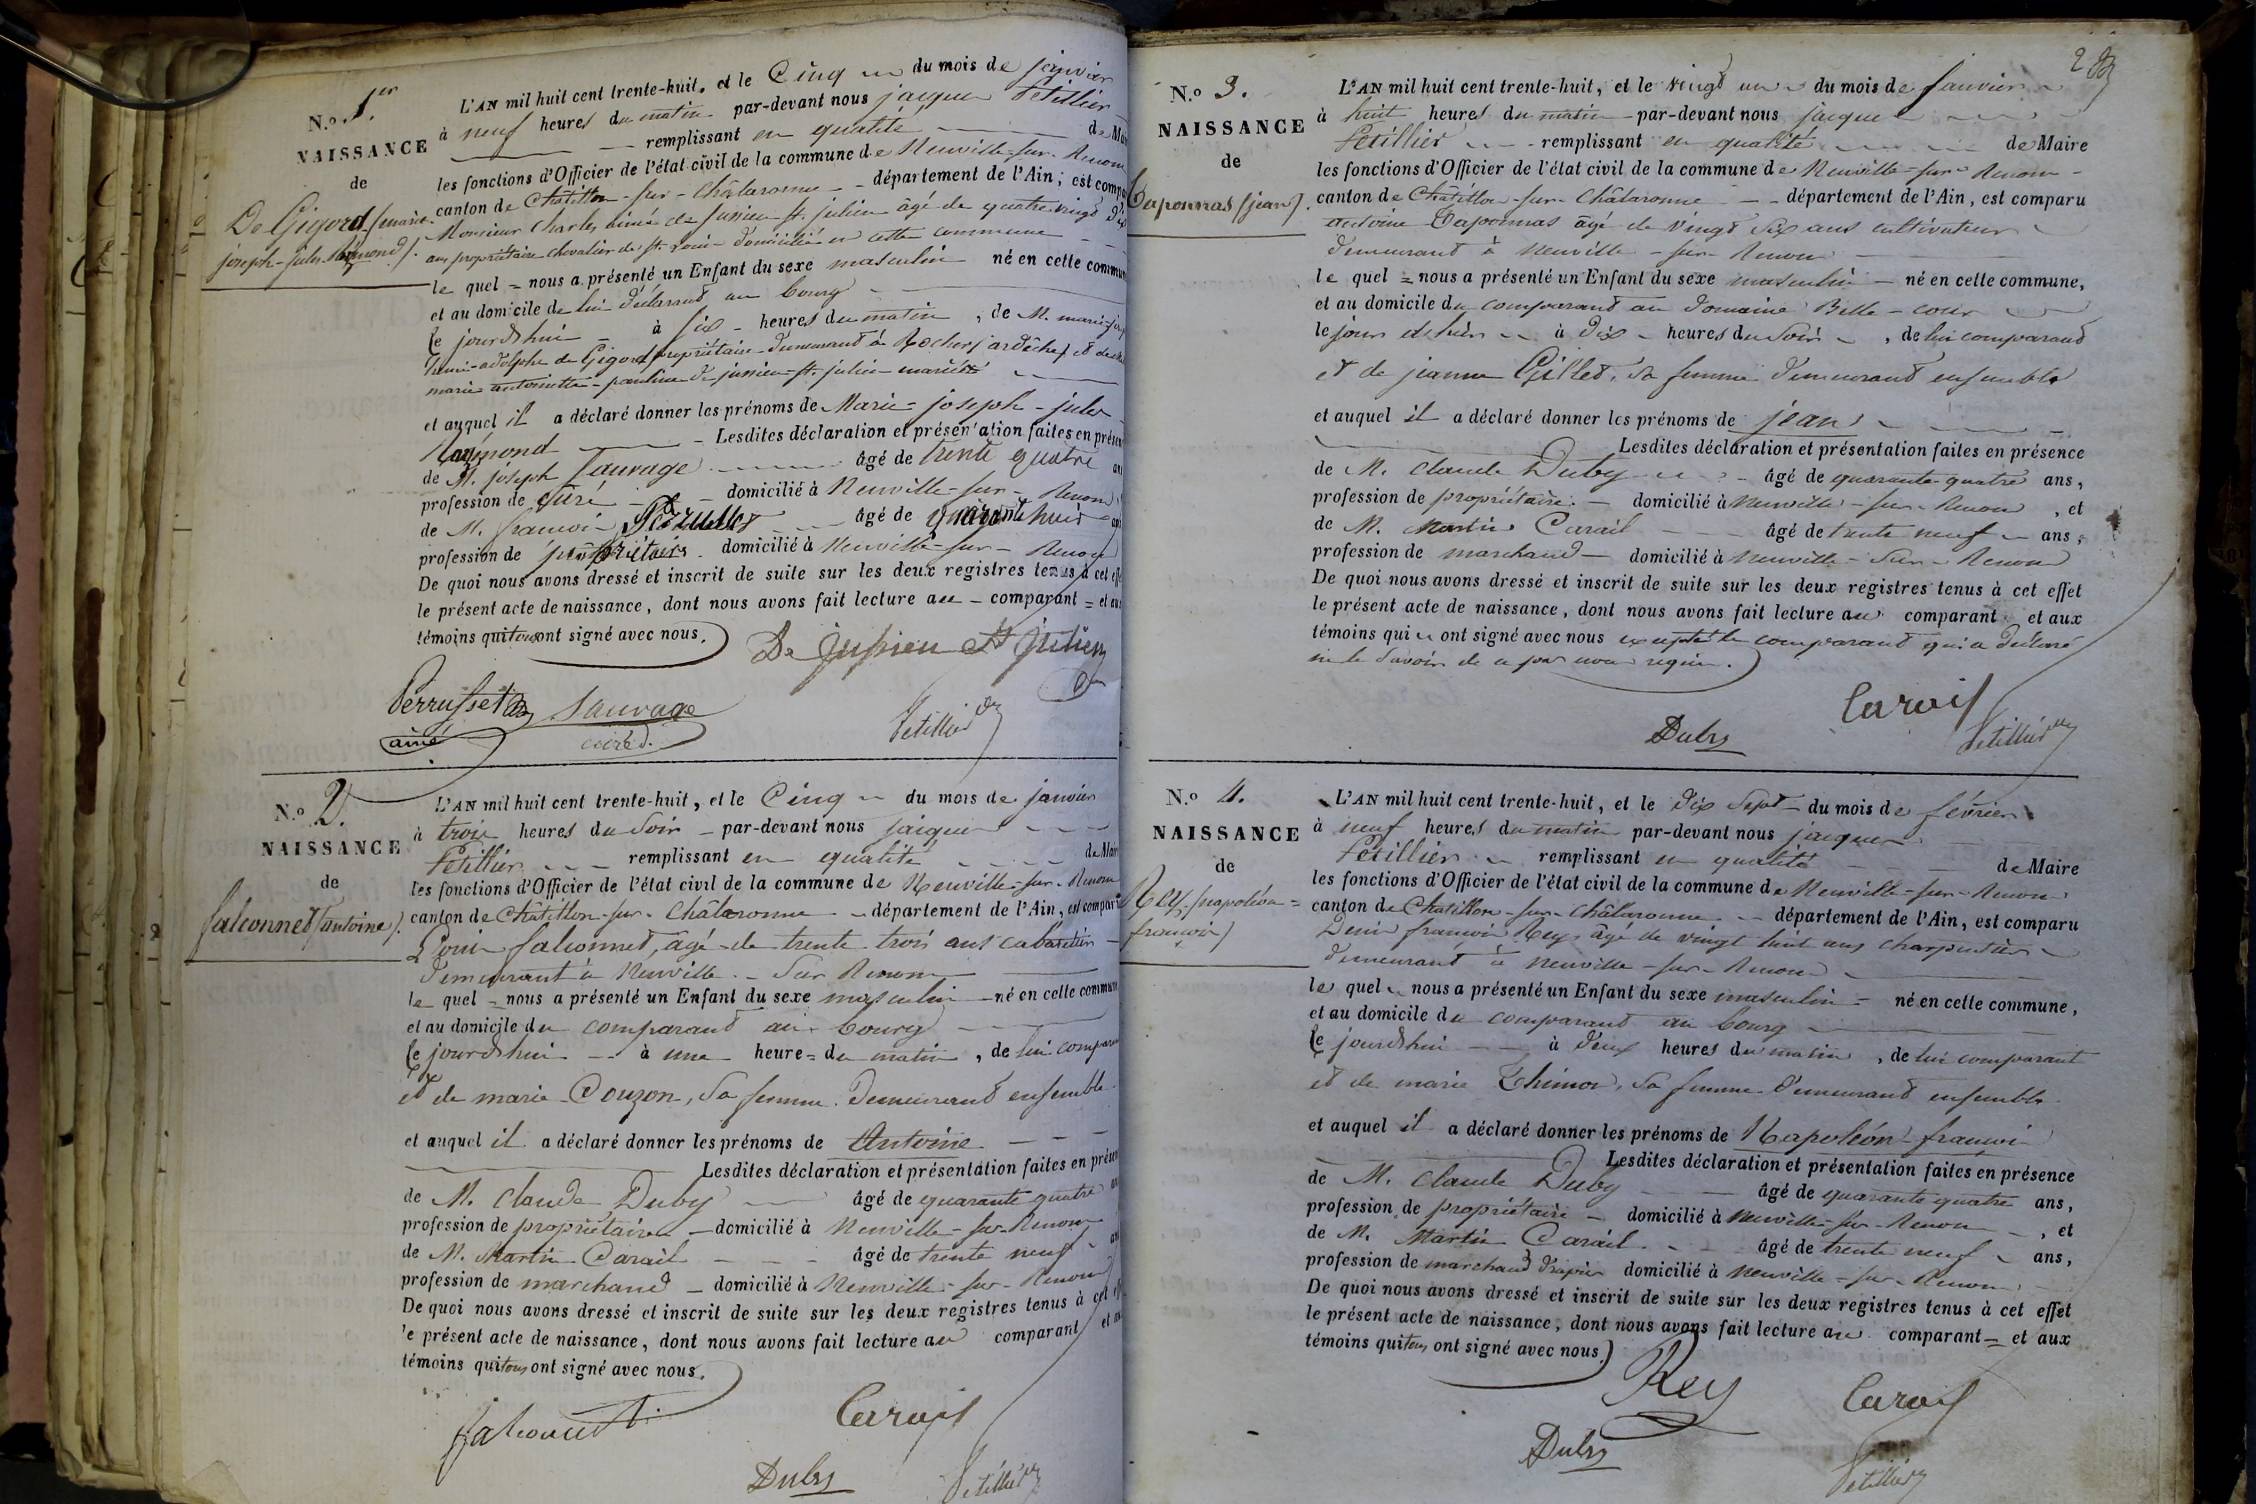 N.o 1.er
NAISSANCE
de
De Gigord (marie-
joseph-jules-Raymond).
L'AN mil huit cent trente-huit, et le Cinq du mois de janvier
à neuf heures du matin par-devant nous jacques Petillier
remplissant en qualité de Mai
les fonctions d'Officier de l'état civil de la commune de Neuville-sur-Renom
canton de Châtillon-sur-Châlaronne département de l'Ain, est compa
Monsieur Charles aimé de jussieu st. julien âgé de quatrevingt dix
ans propriétaire chevalier de st. Louis domicilié en cette commune
le quel = nous a présenté un Enfant du sexe masculin né en cette commun
et au domicile de lui déclarant, au bourg
le jourd'hui à six heures du matin, de M. marie-jo
adolphe de Gigord propriétaire demeurant à Rocher (ardèche) et de
marie antoinette-pauline de jussieu-st. julien mariés
et auquel il a déclaré donner les prénoms de Marie-joseph-jules
Raymond Lesdites déclaration et présentation faites en présen
de M. joseph Sauvage âgé de trente quatre an
profession de Curé domicilié à Neuville-sur-Renom,
de M. françois Perrusset âgé de quarante huit ans
profession de propriétaire domicilié à Neuville-sur-Renom
De quoi nous avons dressé et inscrit de suite sur les deux registres tenus à cet eff
le présent acte de naissance, dont nous avons fait lecture au comparant = et aux
témoins qui tous ont signé avec nous.
De Jussieu St Julien
Perrusset Sauvage
ainé curé Petillier
N.o 2.
NAISSANCE
de
falconnet (antoine).
L'AN mil huit cent trente-huit, et le Cinq du mois de janvier
à trois heures du soir par-devant nous jacques
Petillier remplissant en qualité de Mair
les fonctions d'Officier de l'état civil de la commune de Neuville-sur-Renom
canton de Châtillon-sur-Châlaronne département de l'Ain, est compar
Louis falconnet, âgé de trente trois ans cabaretier
demeurant à Neuville-sur Renom
le quel = nous a présenté un Enfant du sexe masculin né en cette commun
et au domicile du comparant au bourg
le jourd'hui à une heure = du matin, de lui compara
et de marie Couzon, sa femme demeurant ensemble
et auquel il a déclaré donner les prénoms de Antoine
Lesdites déclaration et présentation faites en présen
de M. Claude Duby âgé de quarante quatre
profession de propriétaire domicilié à Neuville-sur-Renom
de M. Martin Carail âgé de trente neuf
profession de marchand domicilié à Neuville-sur-Renom
De quoi nous avons dressé et inscrit de suite sur les deux registres tenus à cet eff
le présent acte de naissance, dont nous avons fait lecture au comparant et au
témoins qui tous ont signé avec nous.
falconnet Carail
Duby Petillier
2
N.o 3.
NAISSANCE
de
Caponnas (jean).
L'AN mil huit cent trente-huit, et le vingt un du mois de janvier
à huit heures du matin par-devant nous jacques
Petillier remplissant en qualité de Maire
les fonctions d'Officier de l'état civil de la commune de Neuville-sur-Renom
canton de Châtillon-sur-Châlaronne département de l'Ain, est comparu
antoine Caponnas âgé de vingt six ans cultivateur
demeurant à Neuville-sur-Renom
le quel = nous a présenté un Enfant du sexe masculin né en cette commune,
et au domicile du comparant au domaine Belle-cour
le jour d'hier à dix heures du soir, de lui comparant
et de jeanne Gillet, sa femme demeurant ensemble
et auquel il a déclaré donner les prénoms de jean
Lesdites déclaration et présentation faites en présence
de M. Claude Duby âgé de quarante-quatre ans,
profession de propriétaire domicilié à Neuville-sur-Renom, et
de M. Martin Carail âgé de trente neuf ans,
profession de marchand domicilié à Neuville-sur-Renom
De quoi nous avons dressé et inscrit de suite sur les deux registres tenus à cet effet
le présent acte de naissance, dont nous avons fait lecture au comparant et aux
témoins qui ont signé avec nous excepté le comparant qui a déclaré
ne le savoir de ce par nous requis.
Carail
Duby Petillier
N.o 4.
NAISSANCE
de
Rey (napoléon-
françois)
L'AN mil huit cent trente-huit, et le dix sept du mois de février
à neuf heures du matin par-devant nous jacques
Petillier remplissant en qualité de Maire
les fonctions d'Officier de l'état civil de la commune de Neuville-sur-Renom
canton de Châtillon-sur-Châlaronne département de l'Ain, est comparu
Denis françois Rey âgé de vingt huit ans charpentier
demeurant à Neuville-sur-Renom
le quel nous a présenté un Enfant du sexe masculin = né en cette commune,
et au domicile du comparant au bourg
le jourd'hui à deux heures du matin, de lui comparant
et de marie Thimon, sa femme demeurant ensemble
et auquel il a déclaré donner les prénoms de Napoléon-françois
Lesdites déclaration et présentation faites en présence
de M. Claude Duby âgé de quarante quatre ans,
profession de propriétaire domicilié à Neuville-sur-Renom, et
de M. Martin Carail âgé de trente neuf ans,
profession de marchand drapier domicilié à Neuville-sur-Renom
De quoi nous avons dressé et inscrit de suite sur les deux registres tenus à cet effet
le présent acte de naissance, dont nous avons fait lecture au comparant = et aux
témoins qui tous ont signé avec nous.
Rey Carail
Duby Petillier